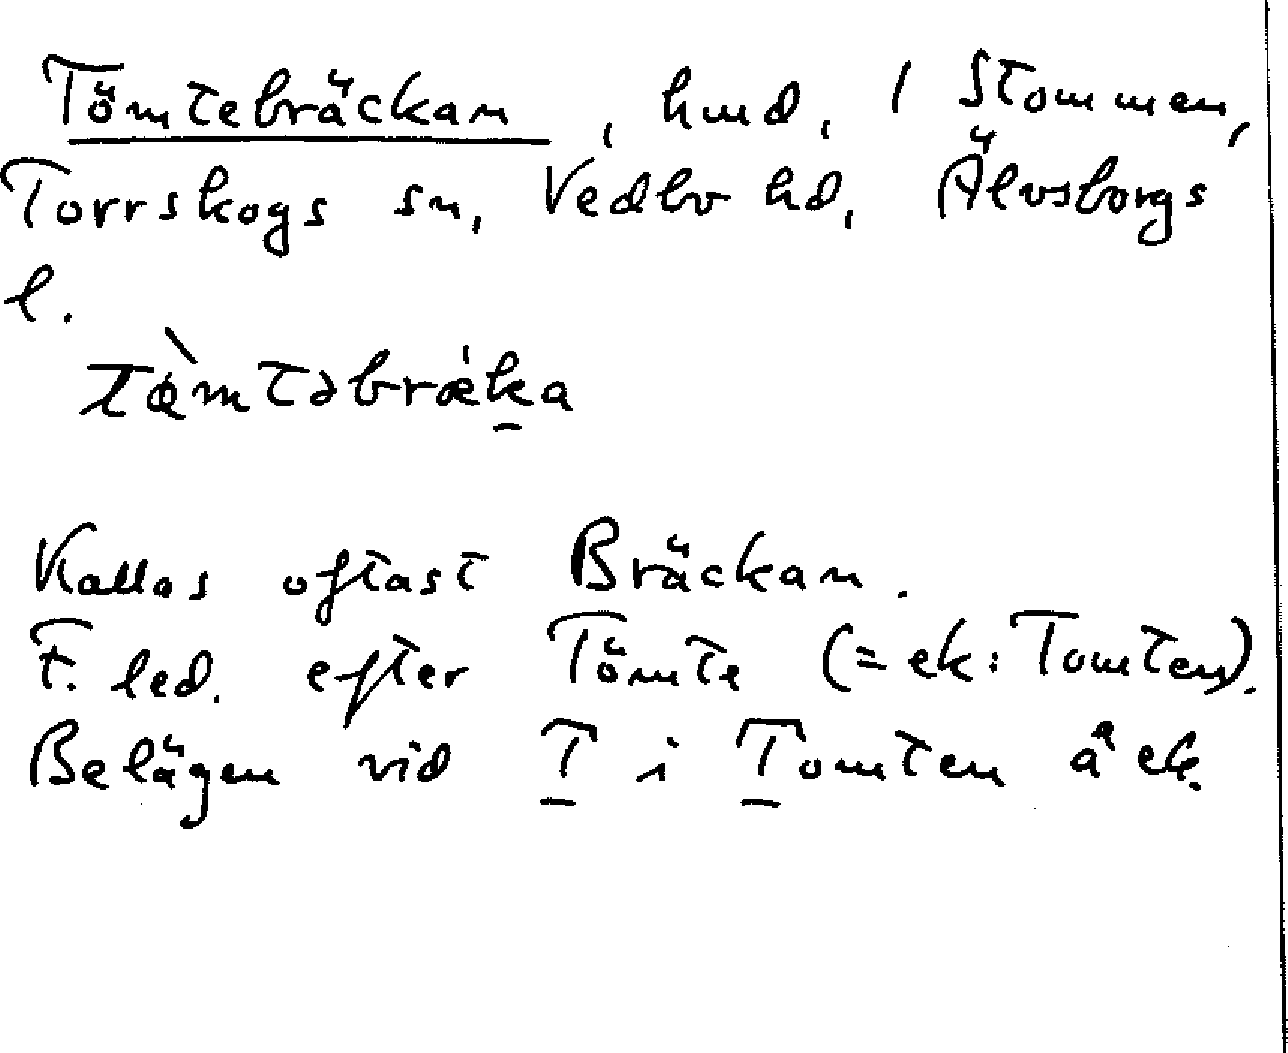 Tömtebräckan, hmd, 1 Stommen,
Torrskogs sn, Vedbo hd, Älvsborgs
l.
tæ̀mtəbrǽka
Kallas oftast Bräckan.
F. led. efter Tömte (= ek: Tomten).
Belägen vid T i Tomten å ek.